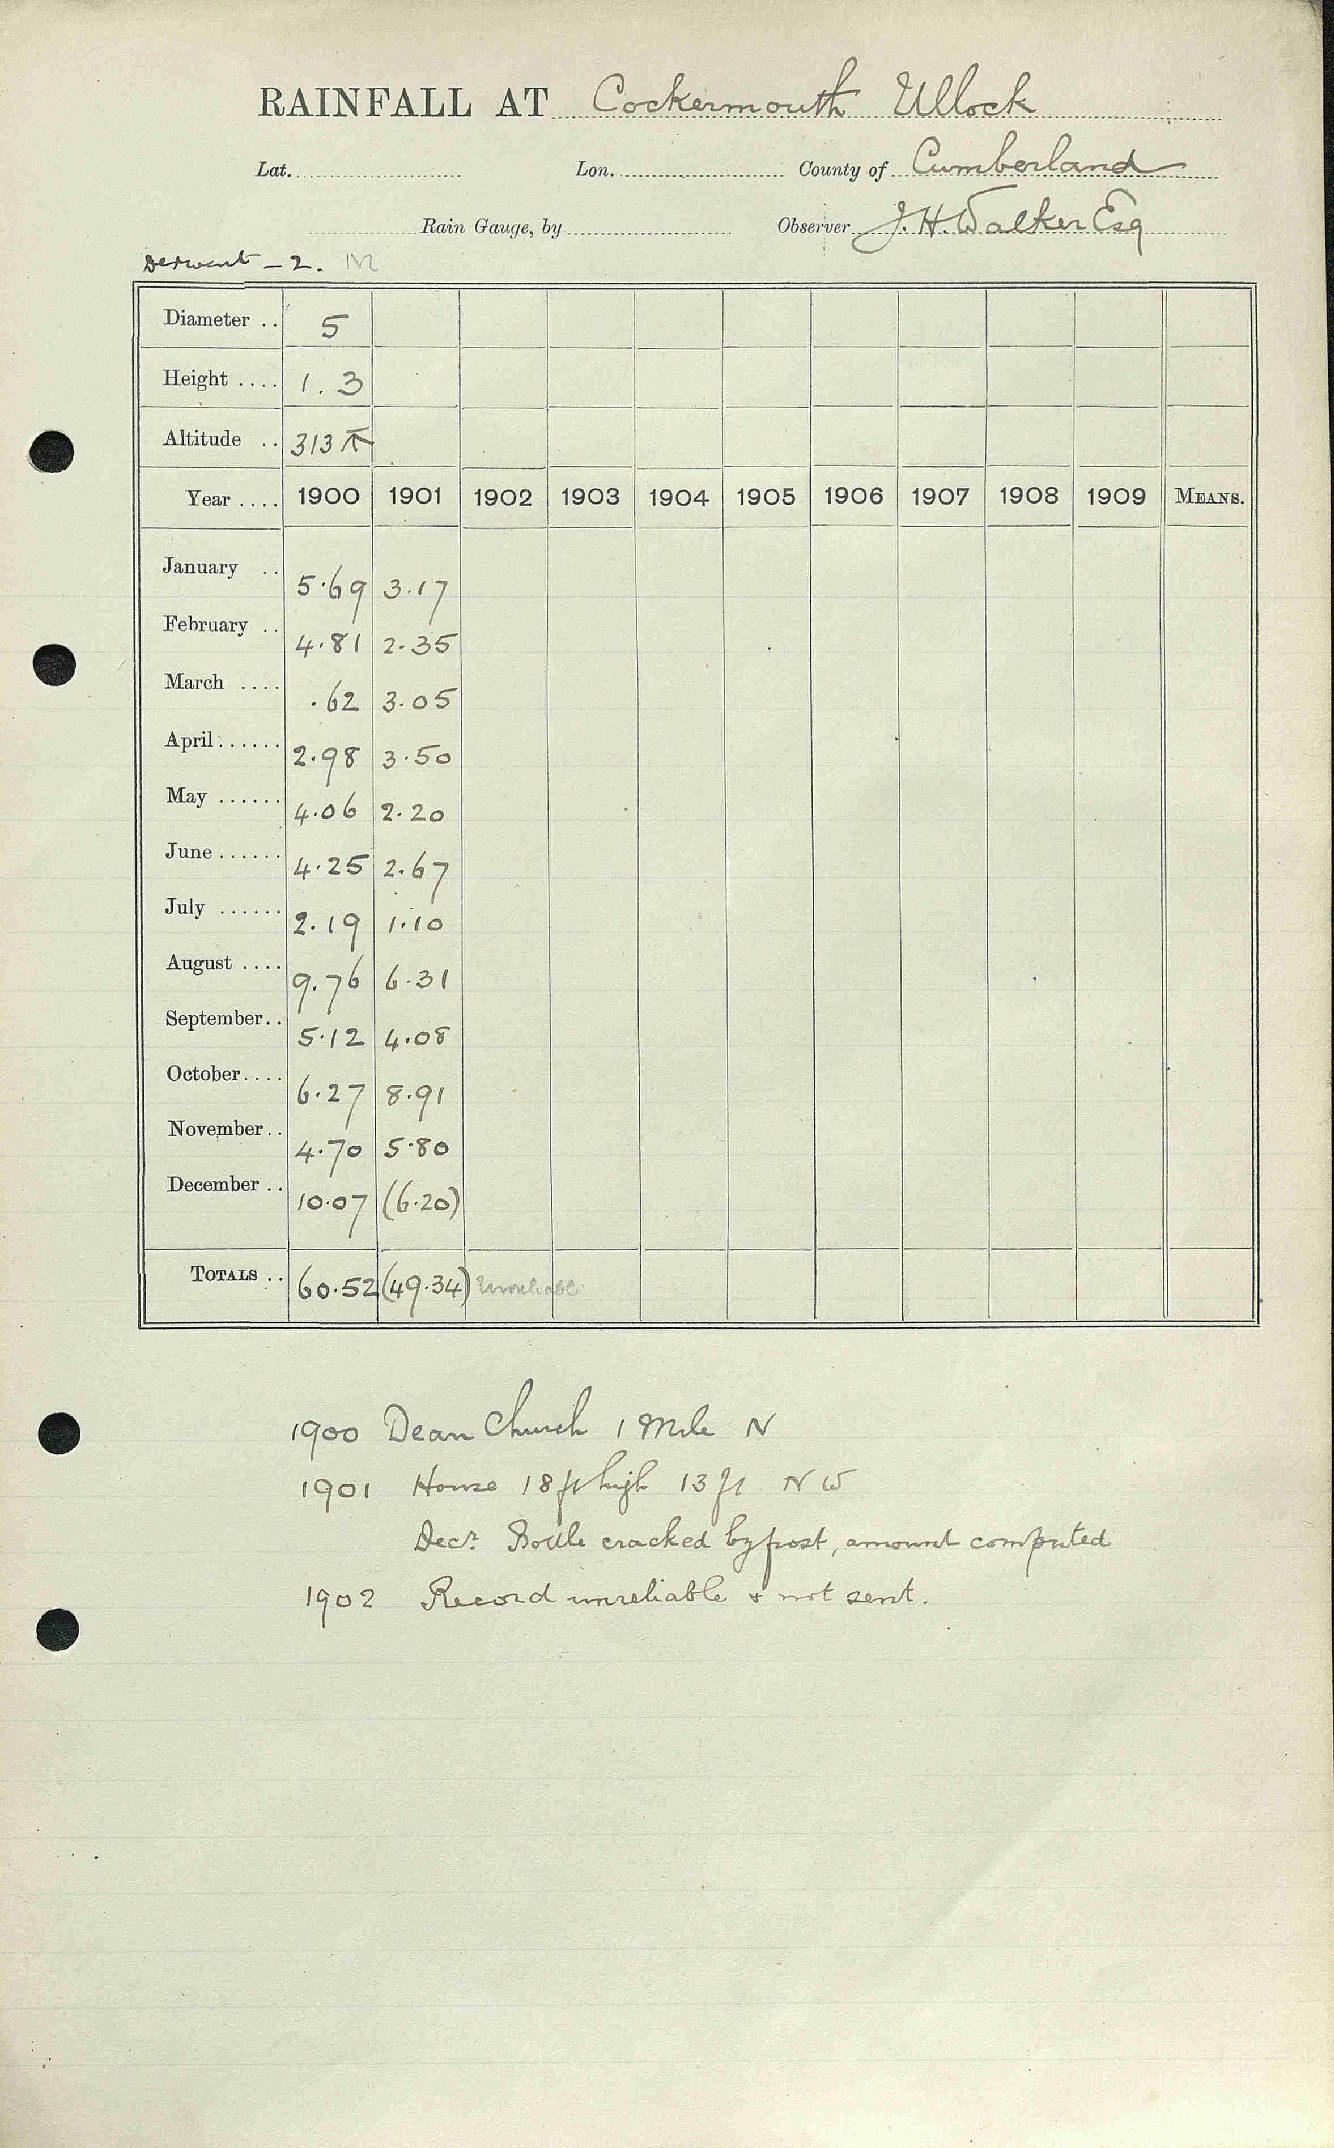 RAINFALL AT Cockermouth Ullock
Lat. Lon. County of Cumberland
Rain Gauge, by Observer J. H. Walker Esq
Derwent - 2. M
Diameter .. 5
Height .... 1.3
Altitude .. 313
Year .... 1900 1901 1902 1903 1904 1905 1906 1907 1908 1909 MEANS.
January .. 5.69 3.17
February .. 4.81 2.35
March .... .62 3.05
April ...... 2.98 3.50
May ...... 4.06 2.20
June ...... 4.25 2.67
July ...... 2.19 1.10
August .... 9.76 6.31
September .. 5.12 4.08
October .... 6.27 8.91
November .. 4.70 5.80
December .. 10.07 (6.20)
TOTALS .. 60.52 (49.34) Unreliable
1900 Dean Church 1 Mile N
1901 House 18 ft high 13 ft N W
Decr. Bottle cracked by frost, amount computed
1902 Record unreliable & not sent.